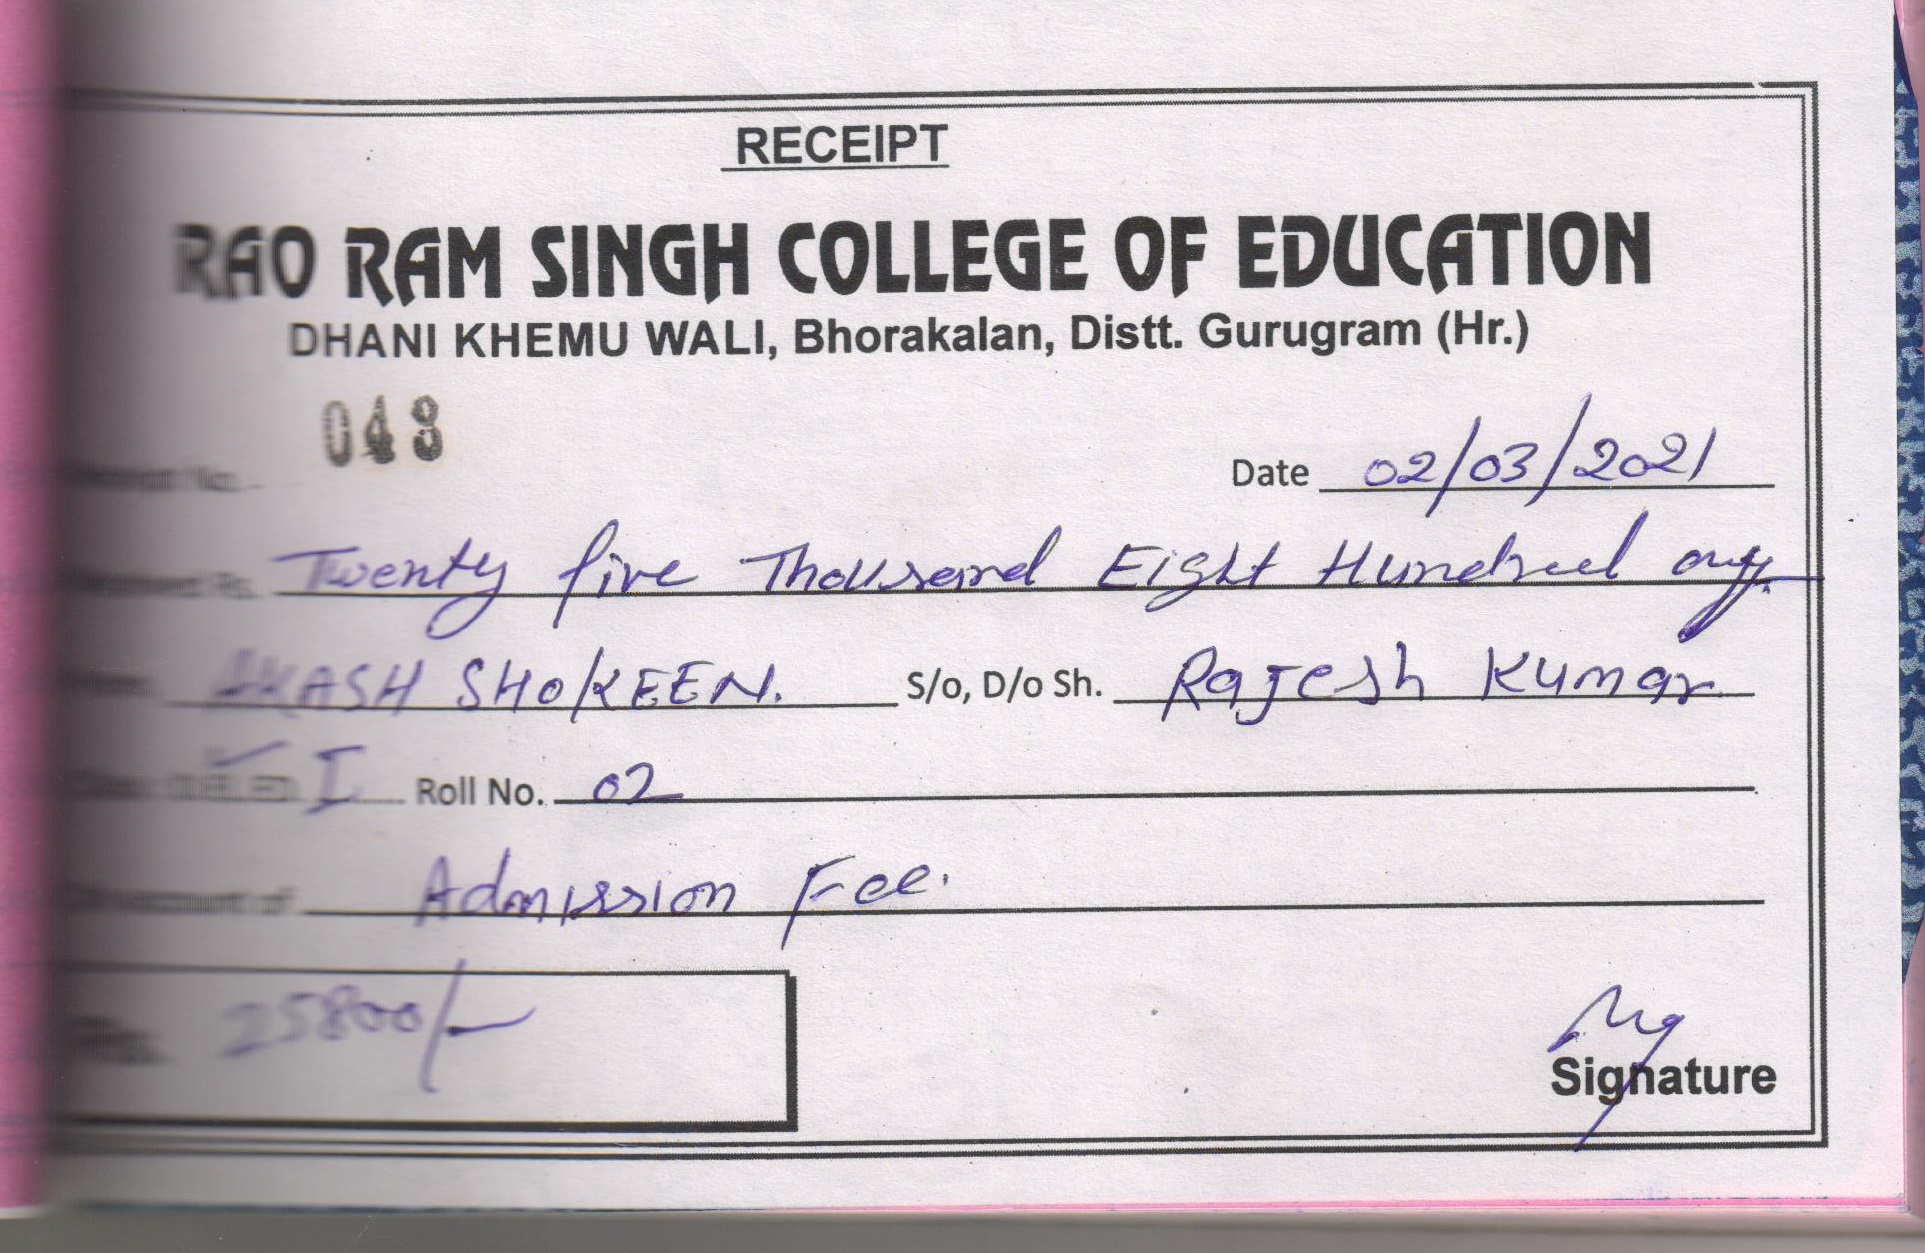 RECEIPT
RAO RAM SINGH COLLEGE OF EDUCATION
DHANI KHEMU WALI, Bhorakalan, Distt. Gurugram (Hr.)
Receipt No. 048 Date 02/03/2021
Received Rs. Twenty five Thousand Eight Hundred only.
AKASH SHOKEEN. S/o, D/o Sh. Rajesh Kumar
I Roll No. 02
account of Admission Fee.
Rs. 25800/-
Signature